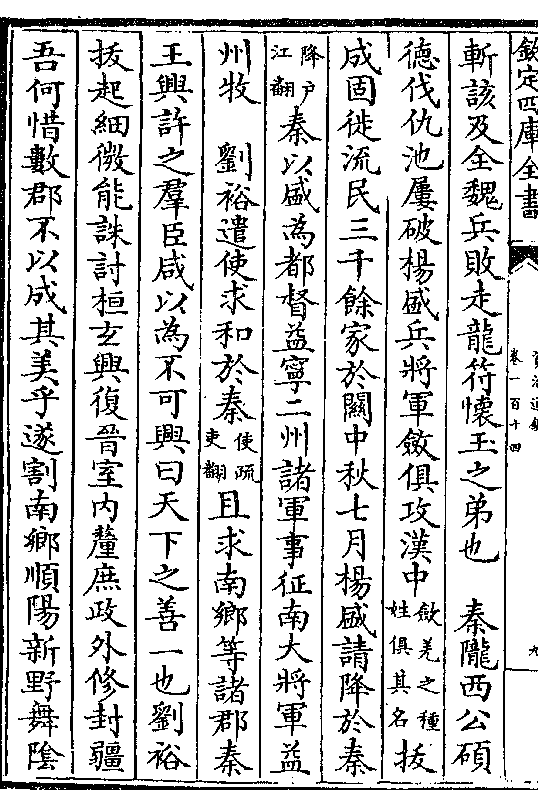 欽定四庫全書
資治通鑑
卷一百十四
九
斬該及全魏兵敗走龍符懷玉之弟也　秦隴西公碩
德伐仇池屢破楊盛兵將軍斂俱攻漢中斂羌之種姓俱其名拔
成固徙流民三千餘家於關中秋七月楊盛請降於秦
降户江翻秦以盛為都督益寧二州諸軍事征南大將軍益
州牧　劉裕遣使求和於秦使疏吏翻且求南鄉等諸郡秦
王興許之羣臣咸以為不可興曰天下之善一也劉裕
拔起細微能誅討桓玄興復晉室内釐庶政外修封疆
吾何惜數郡不以成其美乎遂割南鄉順陽新野舞隂